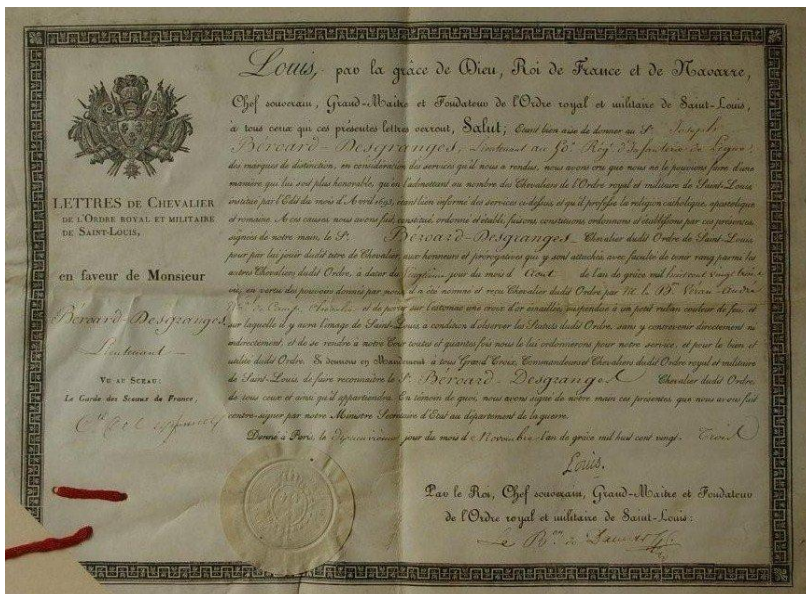 LETTRES DE CHEVALIER
DE L'ORDRE ROYAL ET MILITAIRE
DE SAINT-LOUIS,
en faveur de Monsieur
Béroard-Desgranges
Lieutenant
VU AU SCEAU :
Le Garde des Sceaux de France,
Louis, par la grâce de Dieu, Roi de France et de Navarre,
Chef souverain, Grand-Maître et Fondateur de l'Ordre royal et militaire de Saint-Louis,
à tous ceux qui ces présentes lettres verront, Salut; Étant bien aise de donner au Sr. Joseph
Béroard-Desgranges, Lieutenant au 50e Régt d'Infanterie de Ligne,
des marques de distinction, en considération des services qu'il nous a rendus, nous avons cru que nous ne le pouvions faire d'une
manière qui lui soit plus honorable, qu'en l'admettant au nombre des Chevaliers de l'Ordre royal et militaire de Saint-Louis,
institué par l'Édit du mois d'Avril 1693, étant bien informé des services ci-dessus, et qu'il professe la religion catholique, apostolique
et romaine. A ces causes, nous avons fait, constitué, ordonné et établi, faisons, constituons, ordonnons et établissons par ces présentes,
signées de notre main, le Sr. Béroard-Desgranges Chevalier dudit Ordre de Saint-Louis,
pour par lui jouir dudit titre de Chevalier, aux honneurs et prérogatives qui y sont attachés, avec faculté de tenir rang parmi les
autres Chevaliers dudit Ordre, à dater du jour du mois d'Août de l'an de grâce mil huit cent vingt trois
où, en vertu des pouvoirs donnés par nous, il a été nommé et reçu Chevalier dudit Ordre par M. le Bon
de Camp, Chevalier et de porter sur l'estomac une croix d'or émaillée, suspendue à un petit ruban couleur de feu, et
sur laquelle il y aura l'image de Saint-Louis, à condition d'observer les Statuts dudit Ordre, sans y contrevenir directement ni
indirectement, et de se rendre à notre Cour toutes et quantes fois nous le lui ordonnerons pour notre service, et pour le bien et
utilité dudit Ordre. Si donnons en Mandement à tous Grand'Croix, Commandeurs et Chevaliers dudit Ordre royal et militaire
de Saint-Louis, de faire reconnaître le Sr. Béroard-Desgranges Chevalier dudit Ordre,
de tous ceux et ainsi qu'il appartiendra. En témoin de quoi, nous avons signé de notre main ces présentes, que nous avons fait
contre-signer par notre Ministre Secrétaire d'État au département de la guerre.
Donné à Paris, le jour du mois de Novembre l'an de grâce mil huit cent vingt-Trois
Louis.
Par le Roi, Chef souverain, Grand-Maître et Fondateur
de l'Ordre royal et militaire de Saint-Louis :